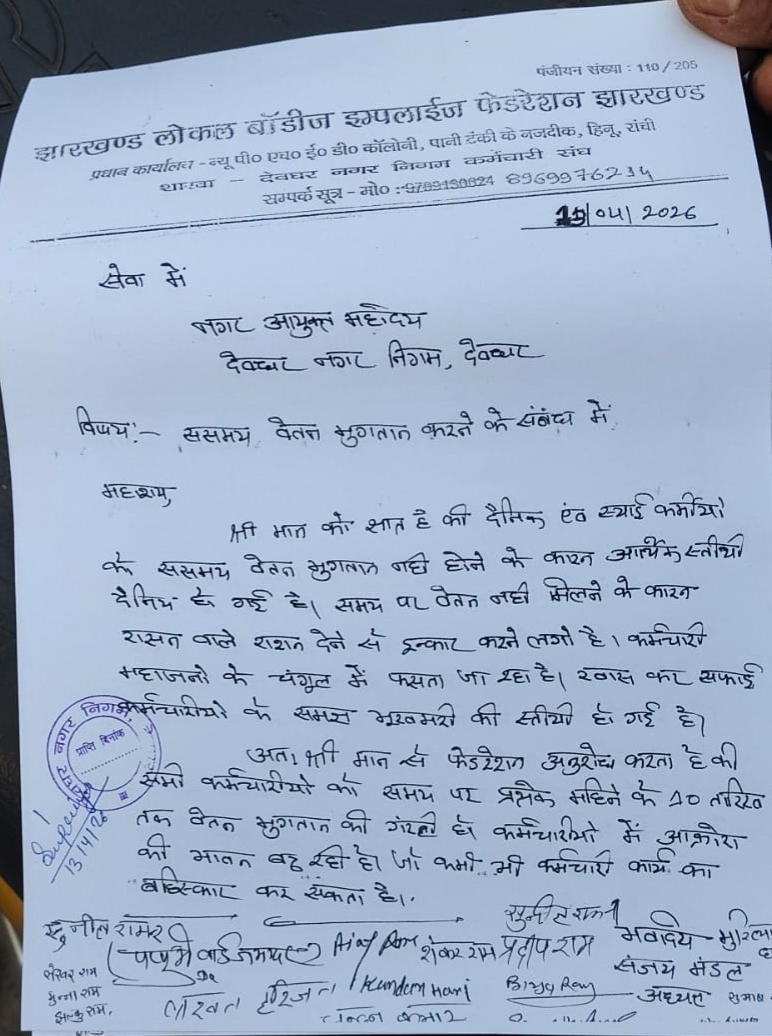 पंजीयन संख्या : 110/205
झारखण्ड लोकल बॉडीज इम्पलाईज फेडरेशन झारखण्ड
प्रधान कार्यालय - न्यू पी० एच० ई० डी० कॉलोनी, पानी टंकी के नजदीक, हिनू, रांची
शाखा - देवघर नगर निगम कर्मचारी संघ
सम्पर्क सूत्र - मो० : 8969976234
/04/2026
सेवा में
नगर आयुक्त महोदय
देवघर नगर निगम, देवघर
विषय:- ससमय वेतन भुगतान करने के संबंध में
महाशय,
श्री मान को ज्ञात है की दैनिक एंव स्थाई कर्मीयो
के ससमय वेतन भुगतान नही होने के कारन आर्थिक स्तीथी
दैनिय हो गई है। समय पर वेतन नही मिलने के कारन
रासन वाले राशन देने से इन्कार करने लगे है। कर्मचारी
महाजनो के चंगुल में फसता जा रहा है। खास कर सफाई
कर्मचारीयो के समक्ष भुखमरी की स्तीथी हो गई है।
अतः श्री मान से फेडरेशन अनुरोध करता है की
सभी कर्मचारीयो को समय पर प्रत्येक महिने के 10 तारिख
तक वेतन भुगतान की गारंटी हो कर्मचारीयो में आक्रोश
की भावना बढ़ रही है। जो कभी भी कर्मचारी कार्य का
बहिस्कार कर सकता है।
नगर निगम,
प्राप्ति दिनांक
13/4/26
सुनील राम
Ajay Ram शंकर राम प्रदीप राम
भवदिय
संजय मंडल
अध्यक्ष
शेखर राम
मुन्ना राम
Kundan Hari
Birju Ram